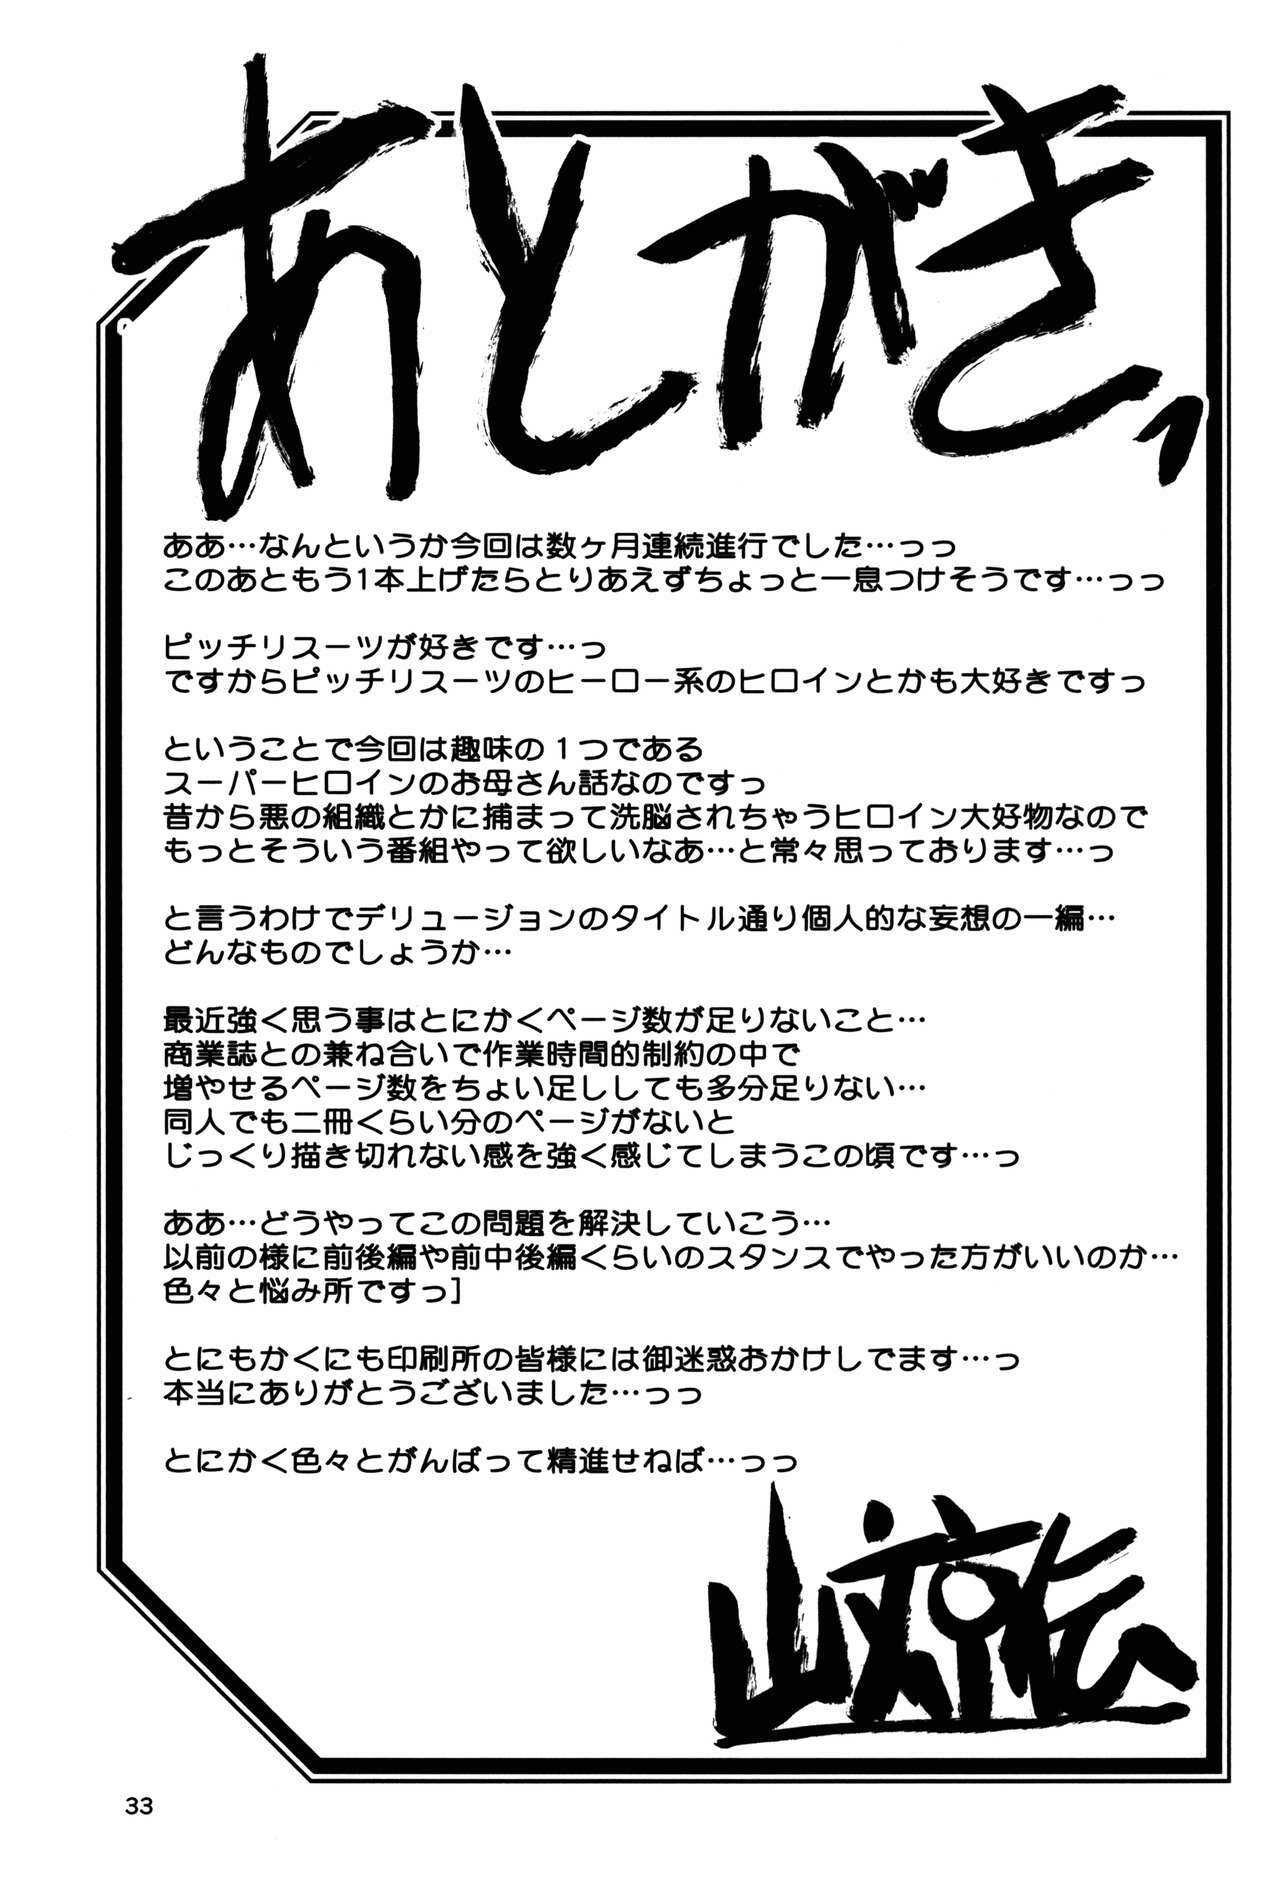 あとがき、
ああ…なんというか今回は数ヶ月連続進行でした…っっ
このあともう1本上げたらとりあえずちょっと一息つけそうです…っっ
ピッチリスーツが好きです…っ
ですからピッチリスーツのヒーロー系のヒロインとかも大好きですっ
ということで今回は趣味の１つである
スーパーヒロインのお母さん話なのですっ
昔から悪の組織とかに捕まって洗脳されちゃうヒロイン大好物なので
もっとそういう番組やって欲しいなあ…と常々思っております…っ
と言うわけでデリュージョンのタイトル通り個人的な妄想の一編…
どんなものでしょうか…
最近強く思う事はとにかくページ数が足りないこと…
商業誌との兼ね合いで作業時間的制約の中で
増やせるページ数をちょい足ししても多分足りない…
同人でも二冊くらい分のページがないと
じっくり描き切れない感を強く感じてしまうこの頃です…っ
ああ…どうやってこの問題を解決していこう…
以前の様に前後編や前中後編くらいのスタンスでやった方がいいのか…
色々と悩み所ですっ]
とにもかくにも印刷所の皆様には御迷惑おかけしでます…っ
本当にありがとうございました…っっ
とにかく色々とがんばって精進せねば…っっ
山文京伝
33